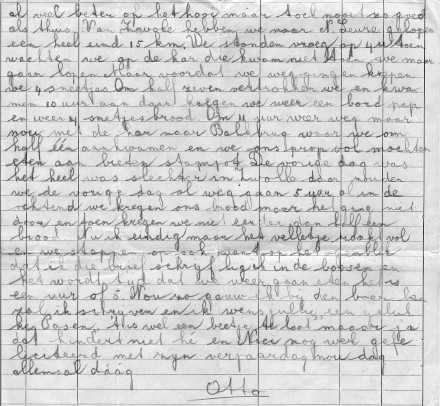 al veel beter op het hooi maar toch nooit zo goed
als thuis. Van Zwolle hebben we naar 't Leure gelopen
een heel eind 15 km. We stonden vroeg op 4 u toen
wachten we op de kar die kwam niet toen we maar
gaan lopen. Maar voordat we weg gingen kregen
we 4 sneetjes. Om half zeven vertrokken we en kwa
men 10 uur aan daar kregen we weer een bord pap
en weer 4 snetjes brood. Om 11 uur weer weg maar
nou met de kar naar Balkbrug waar we om
half één aankwamen en we ons propvol mochten
eten aan bieten stampot. De vorige dag was
het heel wat slechter in Zwolle daar zouden
we de vorige dag al weg gaan 5 uur al in de
ochtend we kregen ons brood maar het ging niet
door en toen kregen we niet eerder dan half een
brood. Nu ik eindig maar het velletje raakt vol
en we stoppen ook want op het ogenblik
dat ik die brief schrijf ligt in de boosen en
het wordt tijd dat we weer gaan eten het is
een uur of 5. Nou zo gauw ik bij den boer ben
zal ik schrijven en ik wens jullie een geluk
kig Pasen. 't is wel een beetje te laat maar ja
dat hindert niet hé en Nico nog wel gefe
liciteerd met zijn verjaardag nou dag
allemaal dáág
Otto